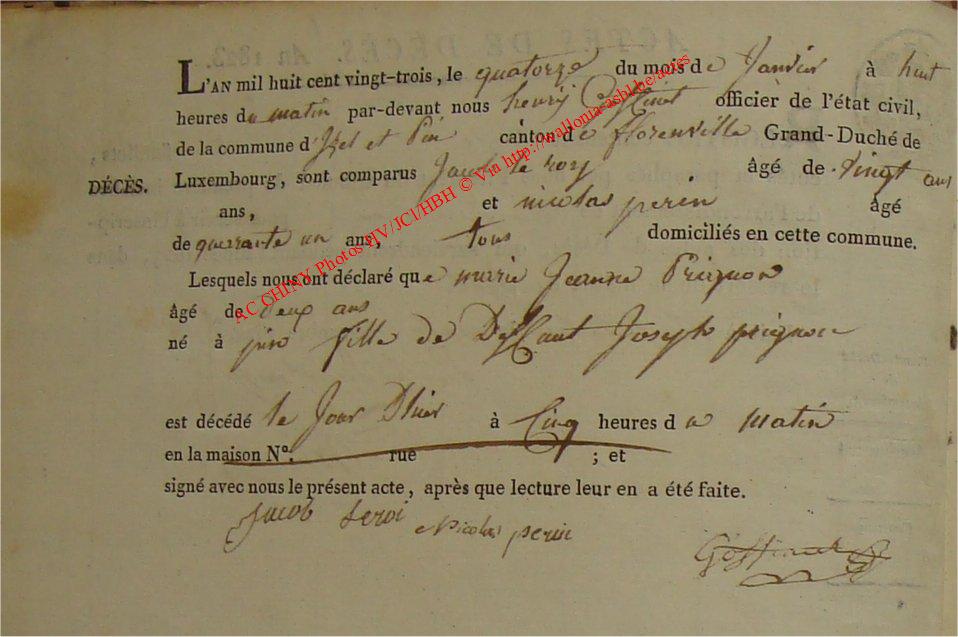 ACTES DE DÉCÈS. An 1823.
L'AN mil huit cent vingt-trois, le quatorze du mois de Janvier à huit
heures du matin par-devant nous henry officier de l'état civil,
de la commune d'Izel et Pin canton de florenville Grand-Duché de
DÉCÈS. Luxembourg, sont comparus Jacob le roy âgé de vingt ans
ans, et nicolas perin âgé
de quarante un ans, tous domiciliés en cette commune.
Lesquels nous ont déclaré que marie Jeanne Prignon
âgé de deux ans
né à pin fille de Joseph prignon
est décédé le Jour Dhier à Cinq heures du matin
en la maison N°. rue ; et
signé avec nous le présent acte, après que lecture leur en a été faite.
Jacob Leroi Nicolas perin
AC CHINY Photos EJV/JCl/HBH © Via http://wallonia-asbl.be/actes